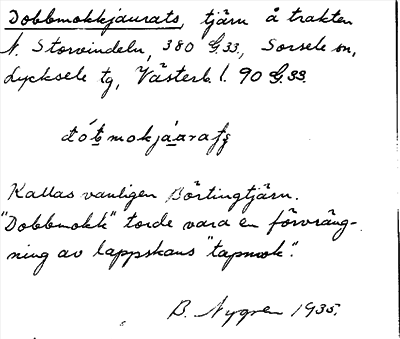 Dobbmokkjaurats, tjärn å trakten
N. Storvindeln, 380 G.33, Sorsele sn,
Lycksele tg, Västerb. l. 90 G.33.
Kallas vanligen Börtingtjärn.
"Dobbmokk" torde vara en förvräng-
ning av lappskans "tapmok".
B. Nygren 1935.